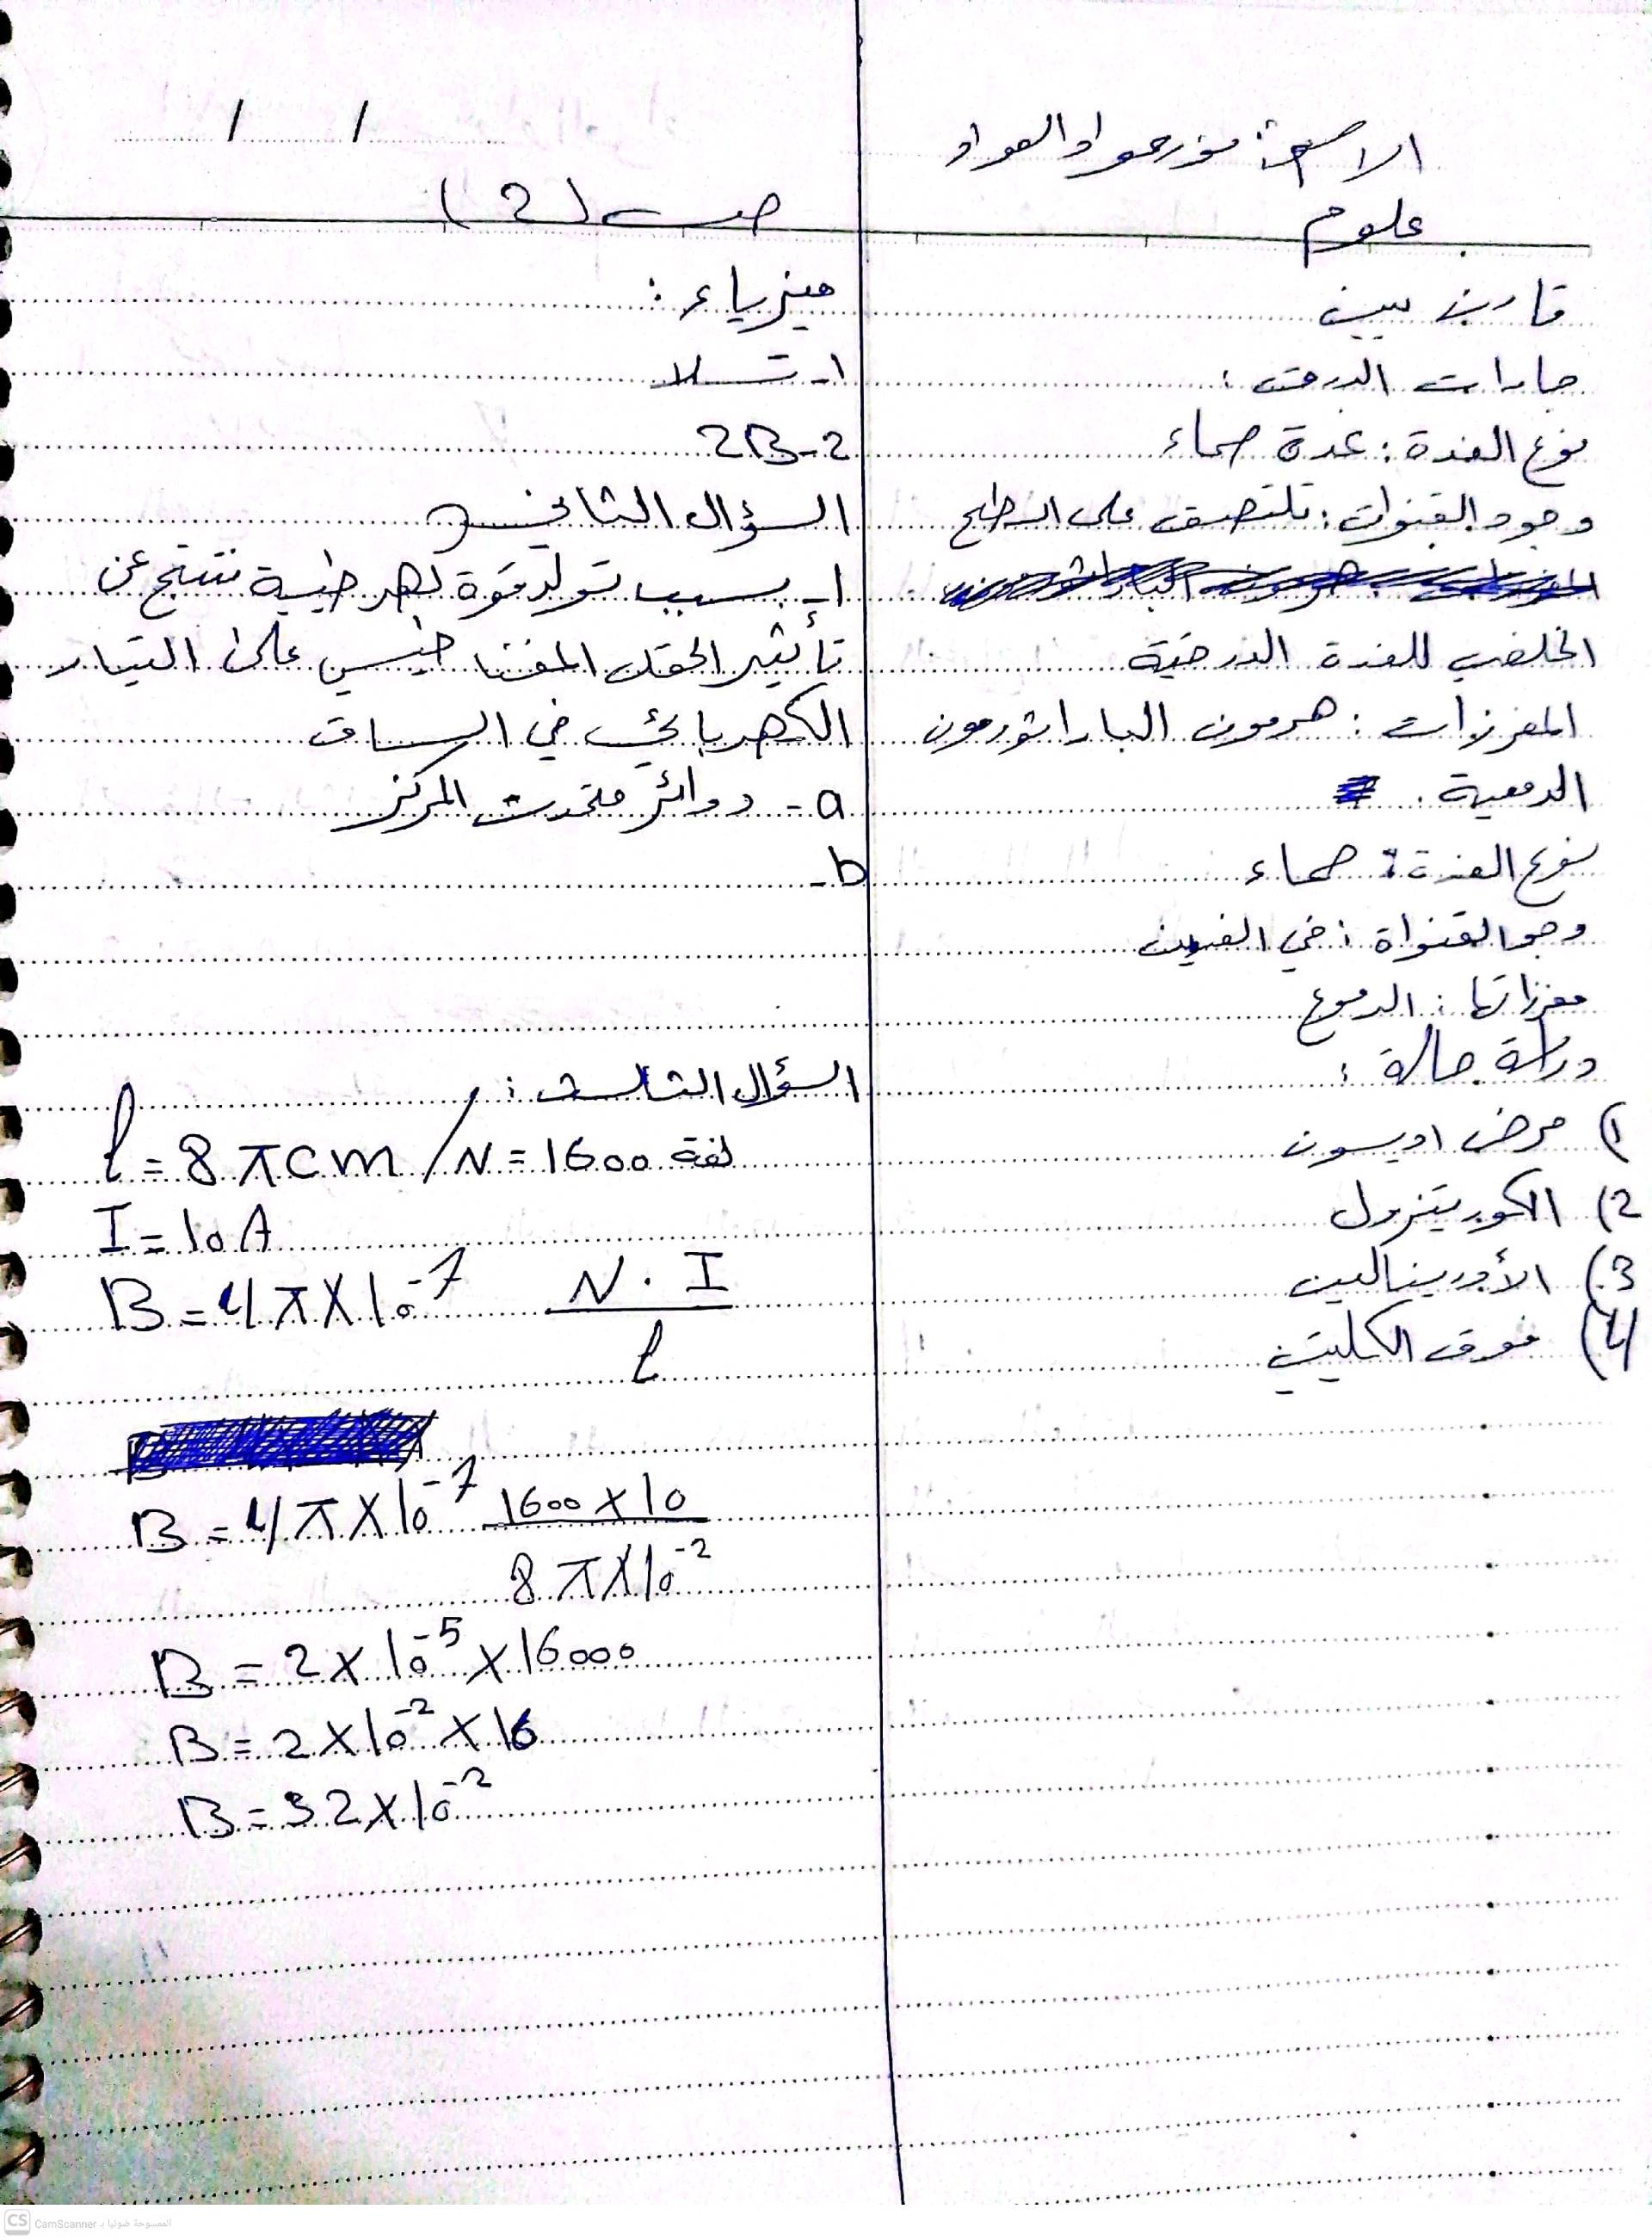 الاسم: نور جواد العواد
علوم
قارن بين
جارات الدرق:
نوع الغدة: غدة صماء
وجود القنوات: تلتصق على السطح
الخلفي للغدة الدرقية
المفرزات: هرمون الباراثورمون
الدمعية.
نوع الغدة: صماء
وجو القنواة: في العينين
مفرزاتها: الدموع
دراسة حالة:
1) مرض اديسون
2) الكوريتزول
3) الأدرينالين
4) فوق الكليتين
/ /
ص (2)
فيزياء:
1- تسلا
2- 2B
السؤال الثاني
1- بسبب تولد قوة كهرطيسية تنتج عن
تأثير الحقل المغناطيسي على التيار
الكهربائي في الساق
a- دوائر متحدت المركز
b-
السؤال الثالث:
l = 8 π cm / N = 1600 لفة
I = 10 A
B = 4 π X 10^-7 N . I / l
B = 4 π X 10^-7 1600 x 10 / 8 π X 10^-2
B = 2 x 10^-5 x 16000
B = 2 x 10^-2 x 16
B = 32 x 10^-2
CS CamScanner الممسوحة ضوئيا بـ